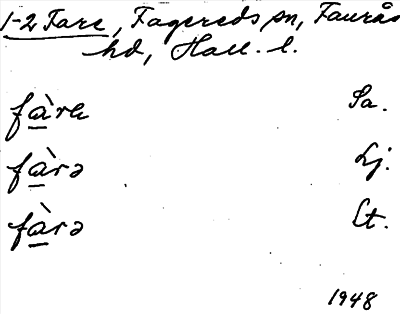 1-2 Fare, Fagereds sn, Faurås
hd, Hall. l.
fàre Sa.
fàrə Lj.
fàrə Lt.
1948